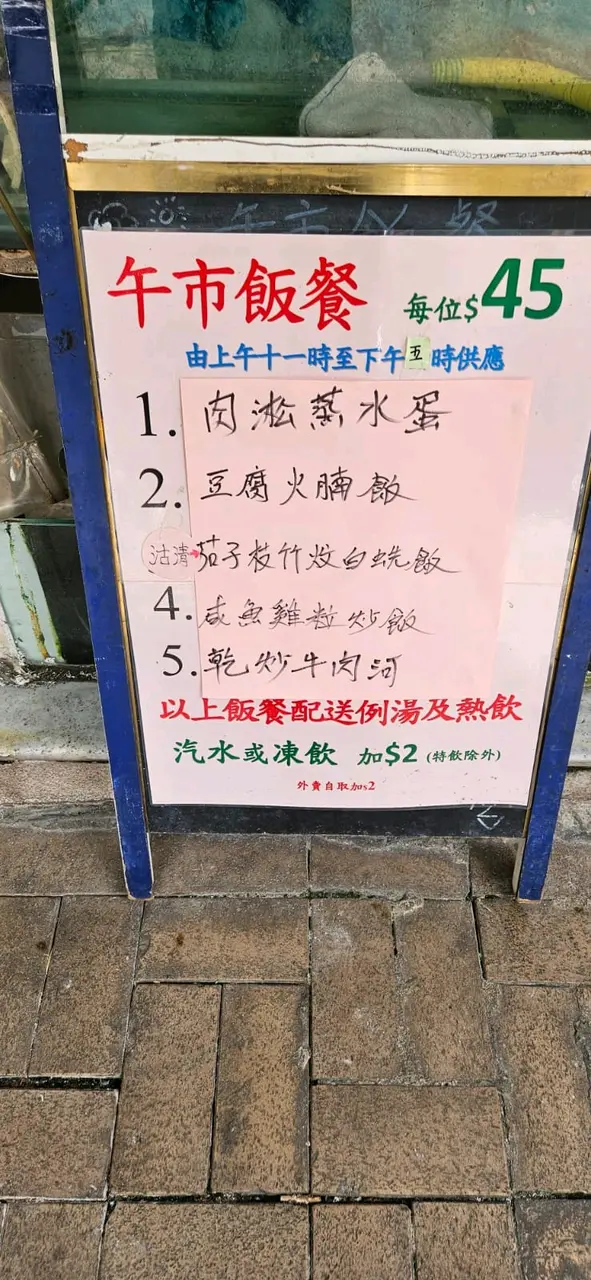 午市飯餐 每位$45
由上午十一時至下午五時供應
1. 肉淞蒸水蛋
2. 豆腐火腩飯
沽清 茄子枝竹炆白鱔飯
4. 咸魚雞粒炒飯
5. 乾炒牛肉河
以上飯餐配送例湯及熱飲
汽水或凍飲 加$2 (特飲除外)
外賣自取加$2